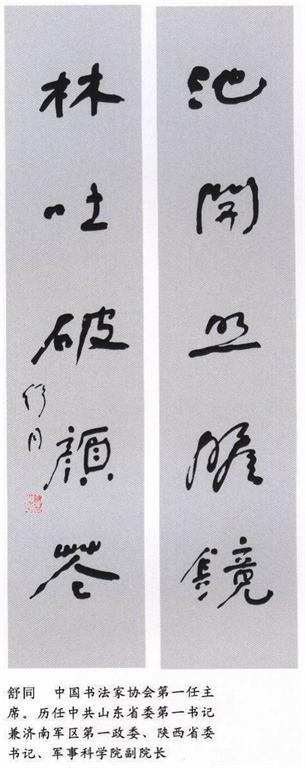 池開照膽鏡
林吐破顏花
舒同
舒同 中国书法家协会第一任主
席。历任中共山东省委第一书记
兼济南军区第一政委、陕西省委
书记、军事科学院副院长